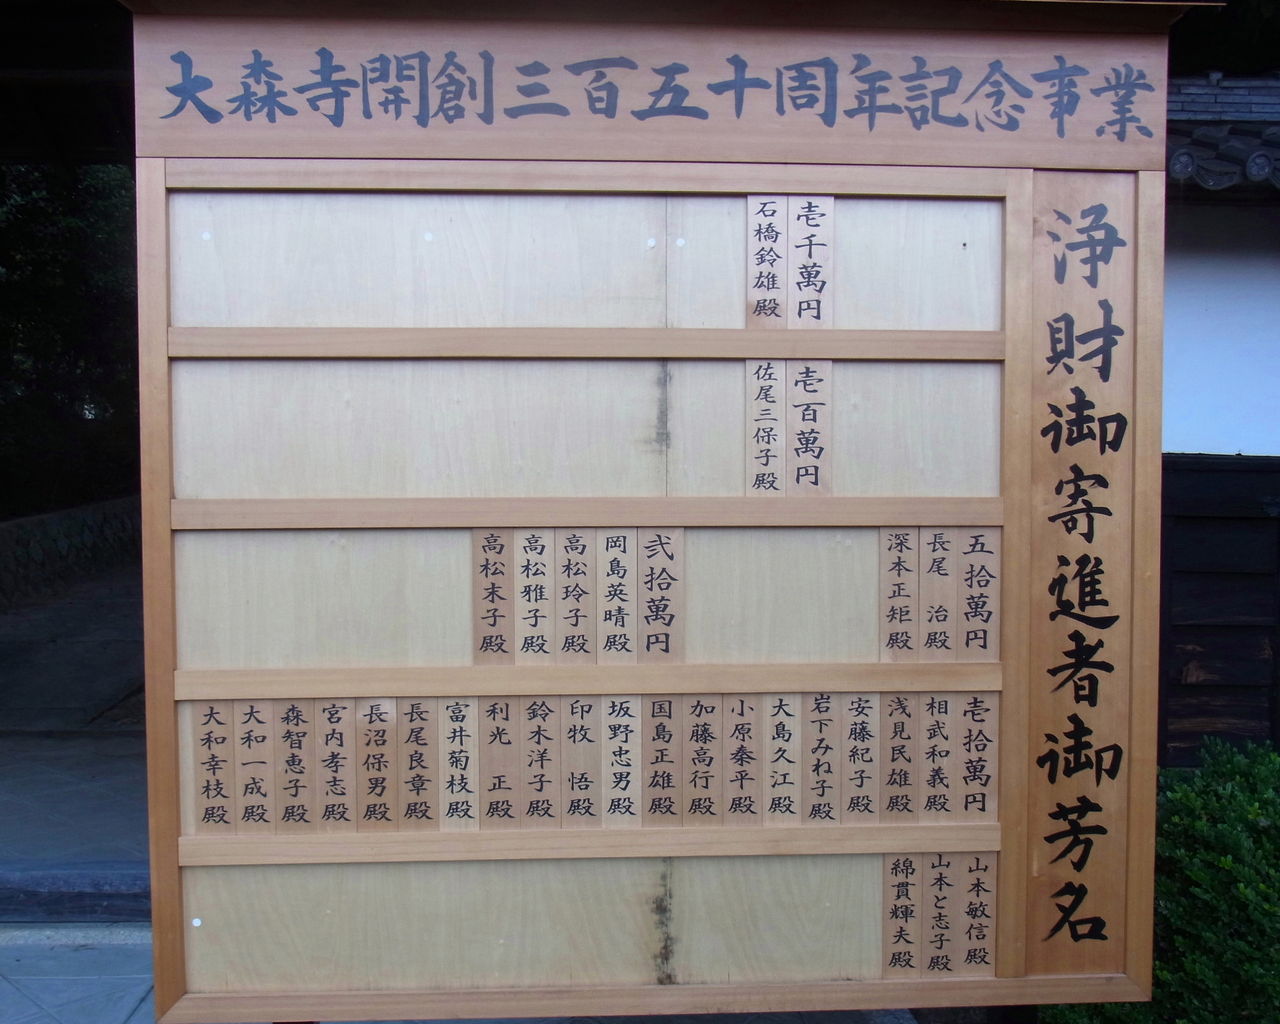 大森寺開創三百五十周年記念事業
浄財御寄進者御芳名
壱千萬円
石橋鈴雄殿
壱百萬円
佐尾三保子殿
五拾萬円
長尾　治殿
深本正矩殿
弐拾萬円
岡島英晴殿
高松玲子殿
高松雅子殿
高松末子殿
壱拾萬円
相武和義殿
浅見民雄殿
安藤紀子殿
岩下みね子殿
大島久江殿
小原秦平殿
加藤高行殿
国島正雄殿
坂野忠男殿
印牧　悟殿
鈴木洋子殿
利光　正殿
富井菊枝殿
長尾良章殿
長沼保男殿
宮内孝志殿
森智恵子殿
大和一成殿
大和幸枝殿
山本敏信殿
山本と志子殿
綿貫輝夫殿